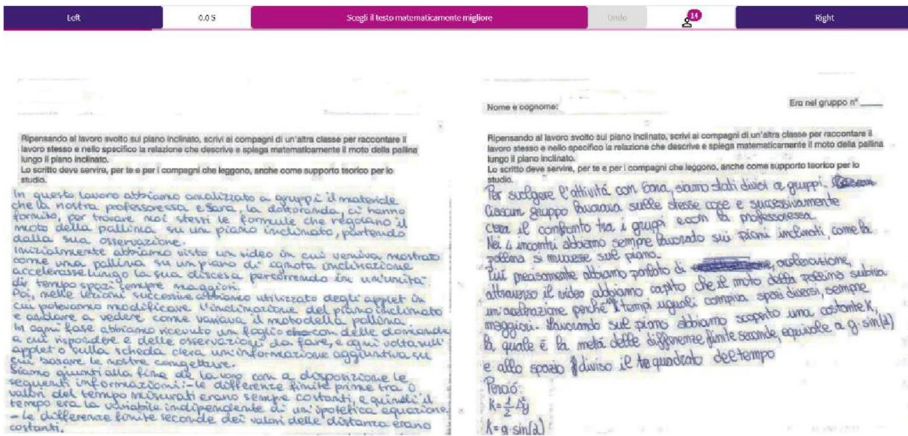 Left
0.0 S
Scegli il testo matematicamente migliore
Undo
14
Right
Ripensando al lavoro svolto sul piano inclinato, scrivi ai compagni di un'altra classe per raccontare il
lavoro stesso e nello specifico la relazione che descrive e spiega matematicamente il moto della pallina
lungo il piano inclinato.
Lo scritto deve servire, per te e per i compagni che leggono, anche come supporto teorico per lo
studio.
In questo lavoro abbiamo analizzato a gruppi il materiale
che la nostra professoressa e Sara, la dottoranda, ci hanno
fornito, per trovare noi stessi le formule che regolano il
moto della pallina su un piano inclinato, partendo
dalla sua osservazione.
Inizialmente abbiamo visto un video in cui veniva mostrato
come una pallina su un piano di ignota inclinazione
accelerasse lungo la sua discesa percorrendo in un'unità
di tempo spazi sempre maggiori.
Poi, nelle lezioni successive abbiamo utilizzato degli applet in
cui potevamo modificare l'inclinazione del piano inclinato
e andare a vedere come variava il moto della pallina.
In ogni fase abbiamo ricevuto un foglio con delle domande
a cui rispondere e delle osservazioni da fare, e ogni volta sull'
applet o sulla scheda c'era un'informazione aggiuntiva su
cui basare le nostre congetture.
Siamo giunti alla fine del lavoro con a disposizione le
seguenti informazioni: - le differenze finite prime tra i
valori del tempo misurati erano sempre costanti, e quindi il
tempo era la variabile indipendente di un'ipotetica equazione
- le differenze finite seconde dei valori delle distanza erano
costanti.
Nome e cognome:
Ero nel gruppo n° ____
Ripensando al lavoro svolto sul piano inclinato, scrivi ai compagni di un'altra classe per raccontare il
lavoro stesso e nello specifico la relazione che descrive e spiega matematicamente il moto della pallina
lungo il piano inclinato.
Lo scritto deve servire, per te e per i compagni che leggono, anche come supporto teorico per lo
studio.
Per svolgere l'attività con Sara, siamo stati divisi a gruppi.
Ciascun gruppo lavorava sulle stesse cose e successivamente
c'era il confronto tra i gruppi e con la professoressa.
Nei 4 incontri abbiamo sempre lavorato sui piani inclinati, come la
pallina si muovesse sul piano.
Più precisamente abbiamo parlato di accelerazione,
attraverso il video abbiamo capito che il moto della pallina subiva
un'accelerazione perché i tempi uguali compiva spazi diversi, sempre
maggiori. Lavorando sul piano abbiamo scoperto una costante k,
la quale è la metà delle differenze finite seconde, equivale a g·sin(α)
e allo spazio diviso il quadrato del tempo
Perciò:
k = 1/2 Δ²y
k = g·sin(α)